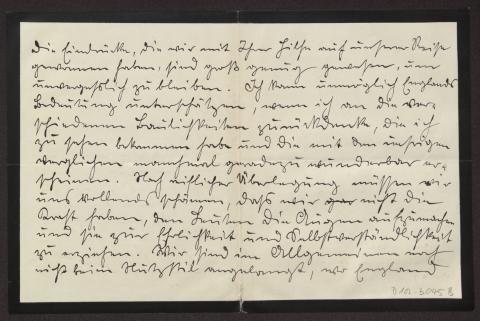 Die Eindrücke, die wir mit Ihrer Hilfe auf unserer Reise
gewonnen haben, sind groß genug gewesen, um
unvergeßlich zu bleiben. Ich kann unmöglich Englands
Bedeutung unterschätzen, wenn ich an die ver-
schiedenen Baulichkeiten zurückdenke, die ich
zu sehen bekommen habe und die mit den unsrigen
verglichen manchmal geradezu wunderbar er-
scheinen. Nach Überlegung müssen wir
uns vollends schämen, dass wir gar nicht die
Kraft haben, den Leuten die Augen aufzumachen
und sie zur Ehrlichkeit und Selbstverständlichkeit
zu erziehen. Wir sind im Allgemeinen noch
nicht beim Nutzstil angelangt, wo England
D 102-3045 B